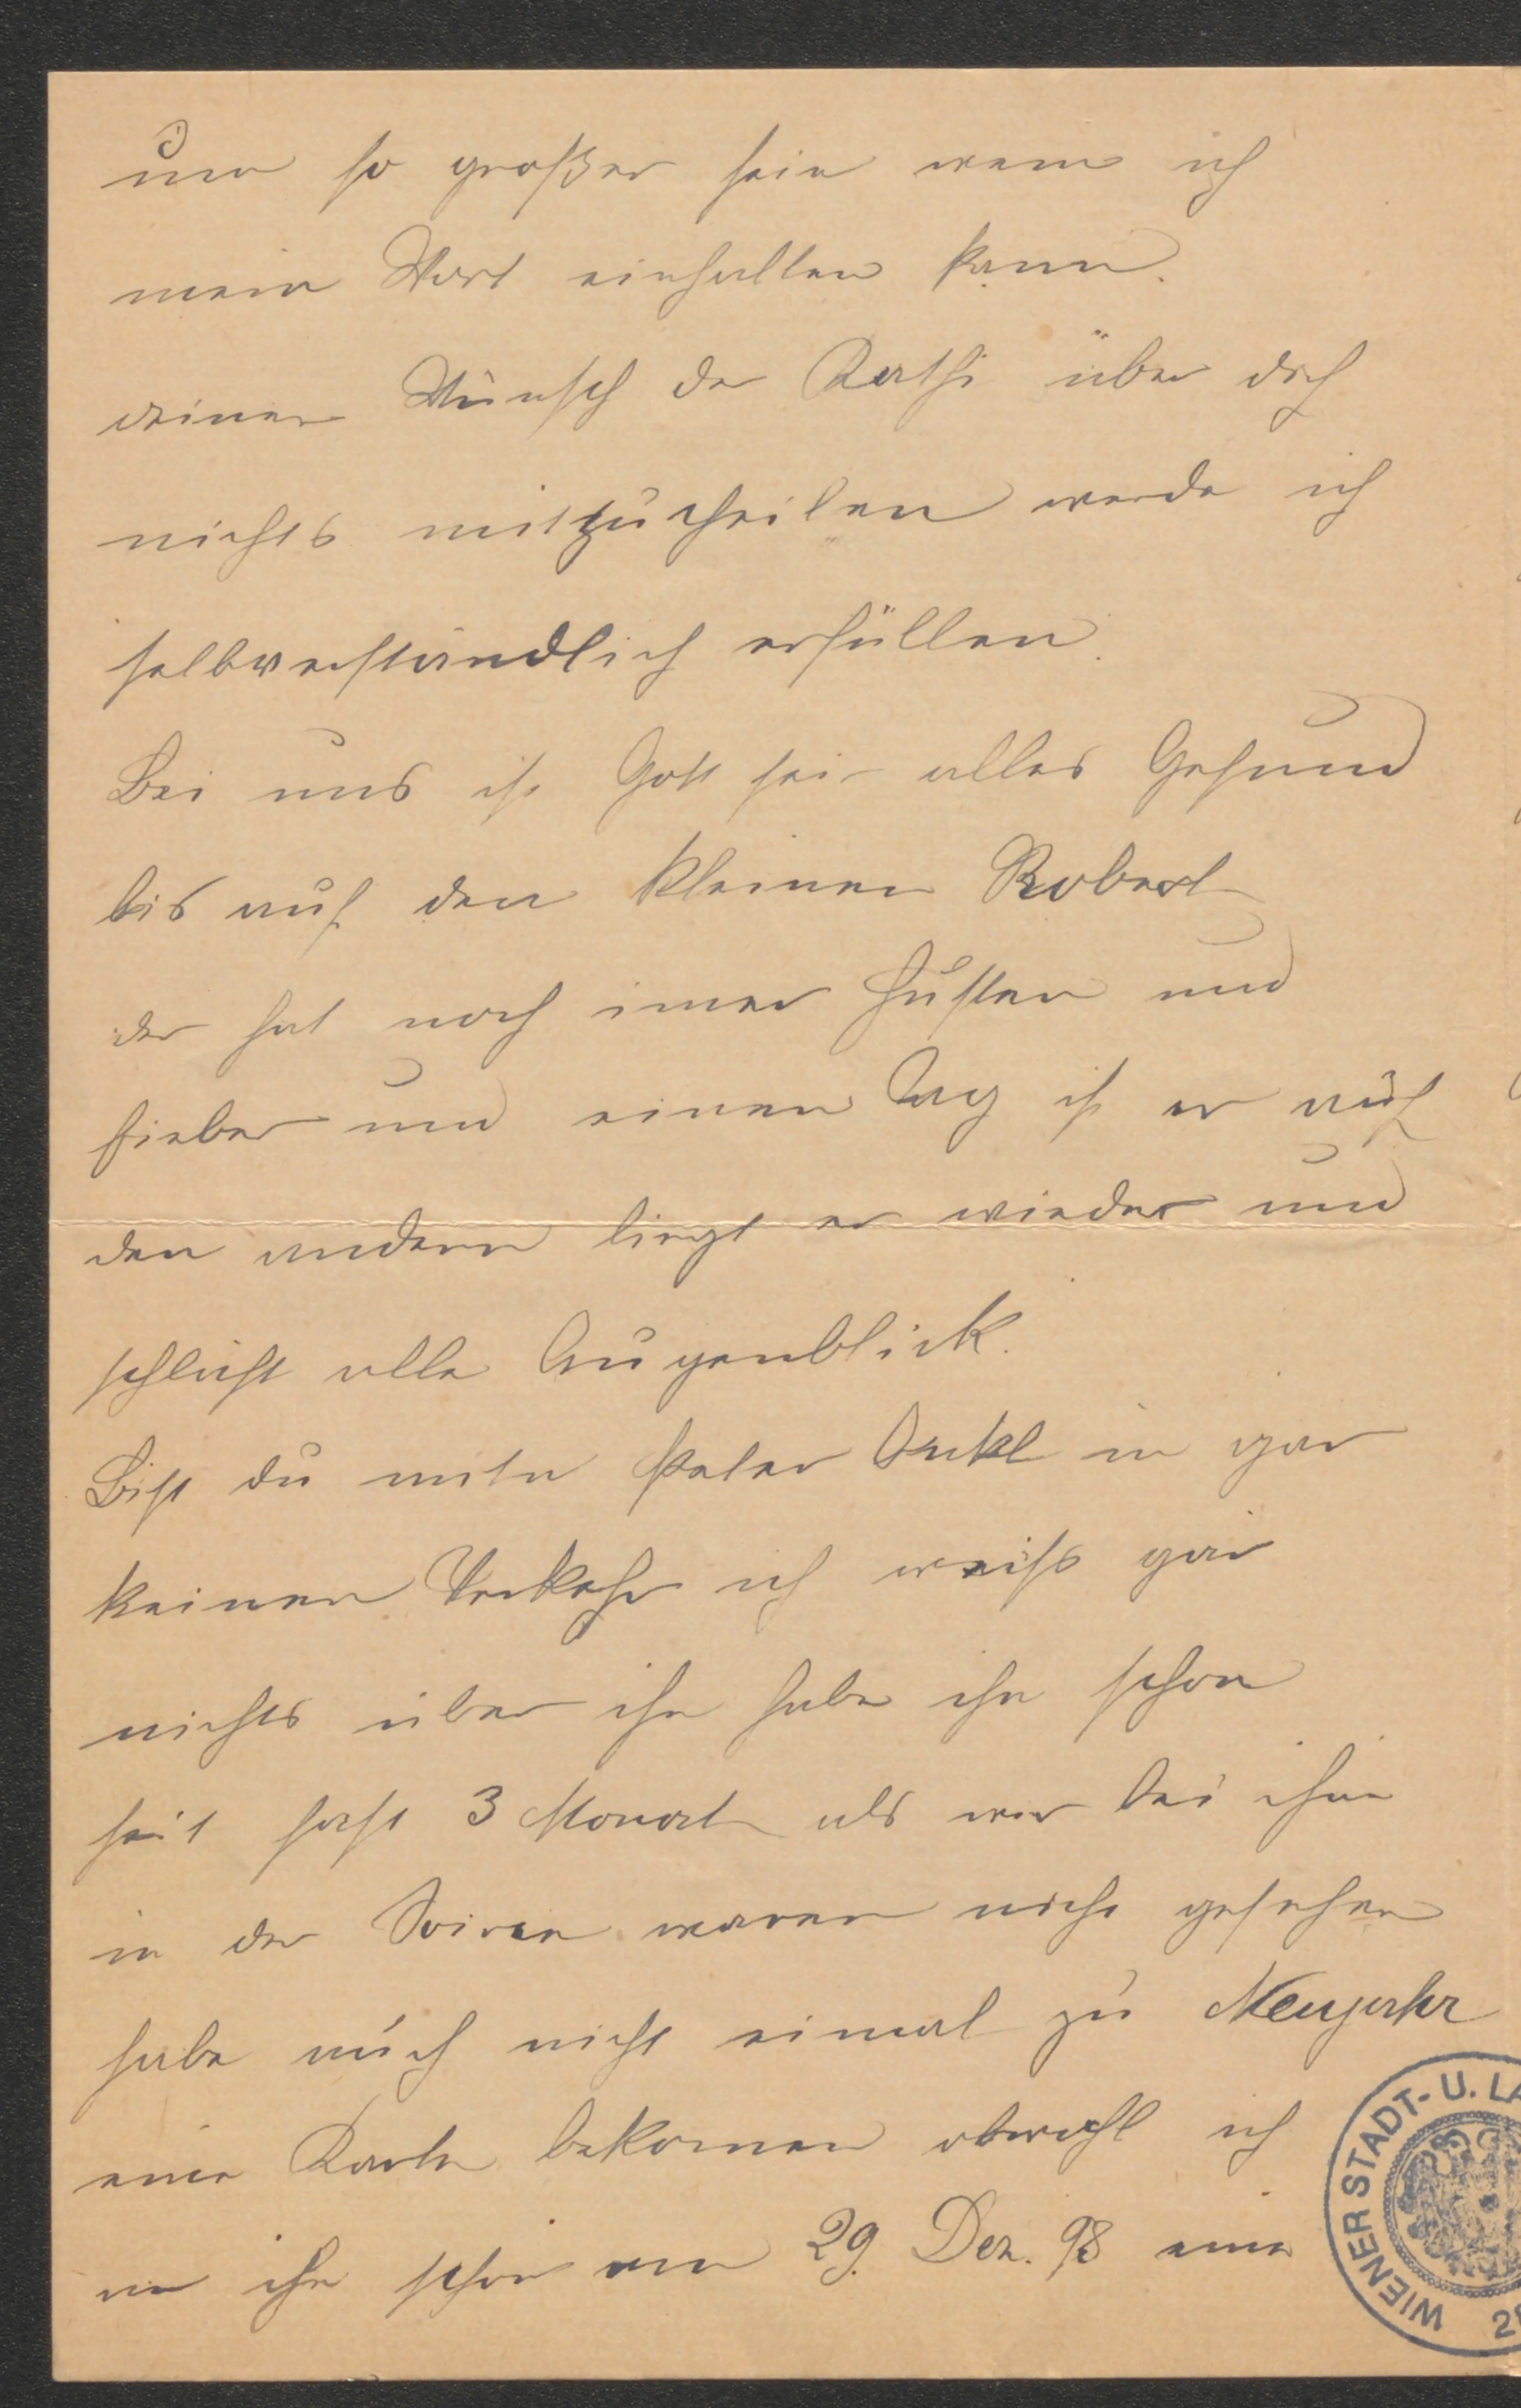 um so großer sein wenn ich
mein Wort einhalten kann.
deinen Wunsch der Kathi über dich
nichts mitzutheilen werde ich
selbverständlich erfüllen.
Bei uns ist Gott sei alles Gesund
bis auf den kleinen Robert
der hat noch imer Husten und
fieber und einen Tag ist er auf
den andern liegt er wieder und
schläft alle Augenblick.
Bist du mitn Onkl in gar
keinen Verkehr ich weiß gar
nichts über ihn habe ihn schon
seit fast 3 Monat als wir bei ihm
in der Soiree waren nicht gesehen
habe auch nicht einmal zu Neujahr
eine Karte bekomen obwohl ich
an ihn schon am 29. Dez. 98 eine
WIENER STADT- U. LA